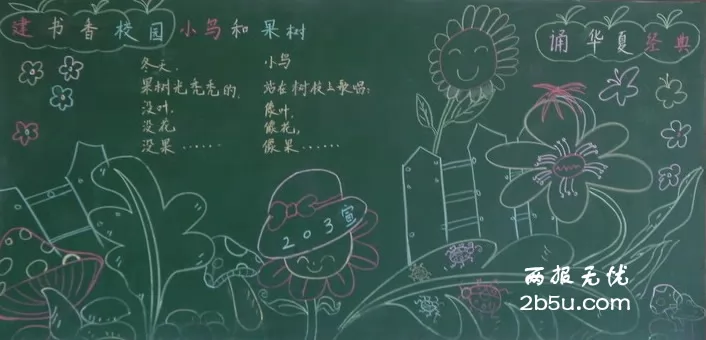 建书香校园
小鸟和果树
诵华夏经典
冬天,
果树光秃秃的,
没叶,
没花,
没果……
小鸟
站在树枝上歌唱:
像叶,
像花,
像果……
203宣
两报无忧
2b5u.com